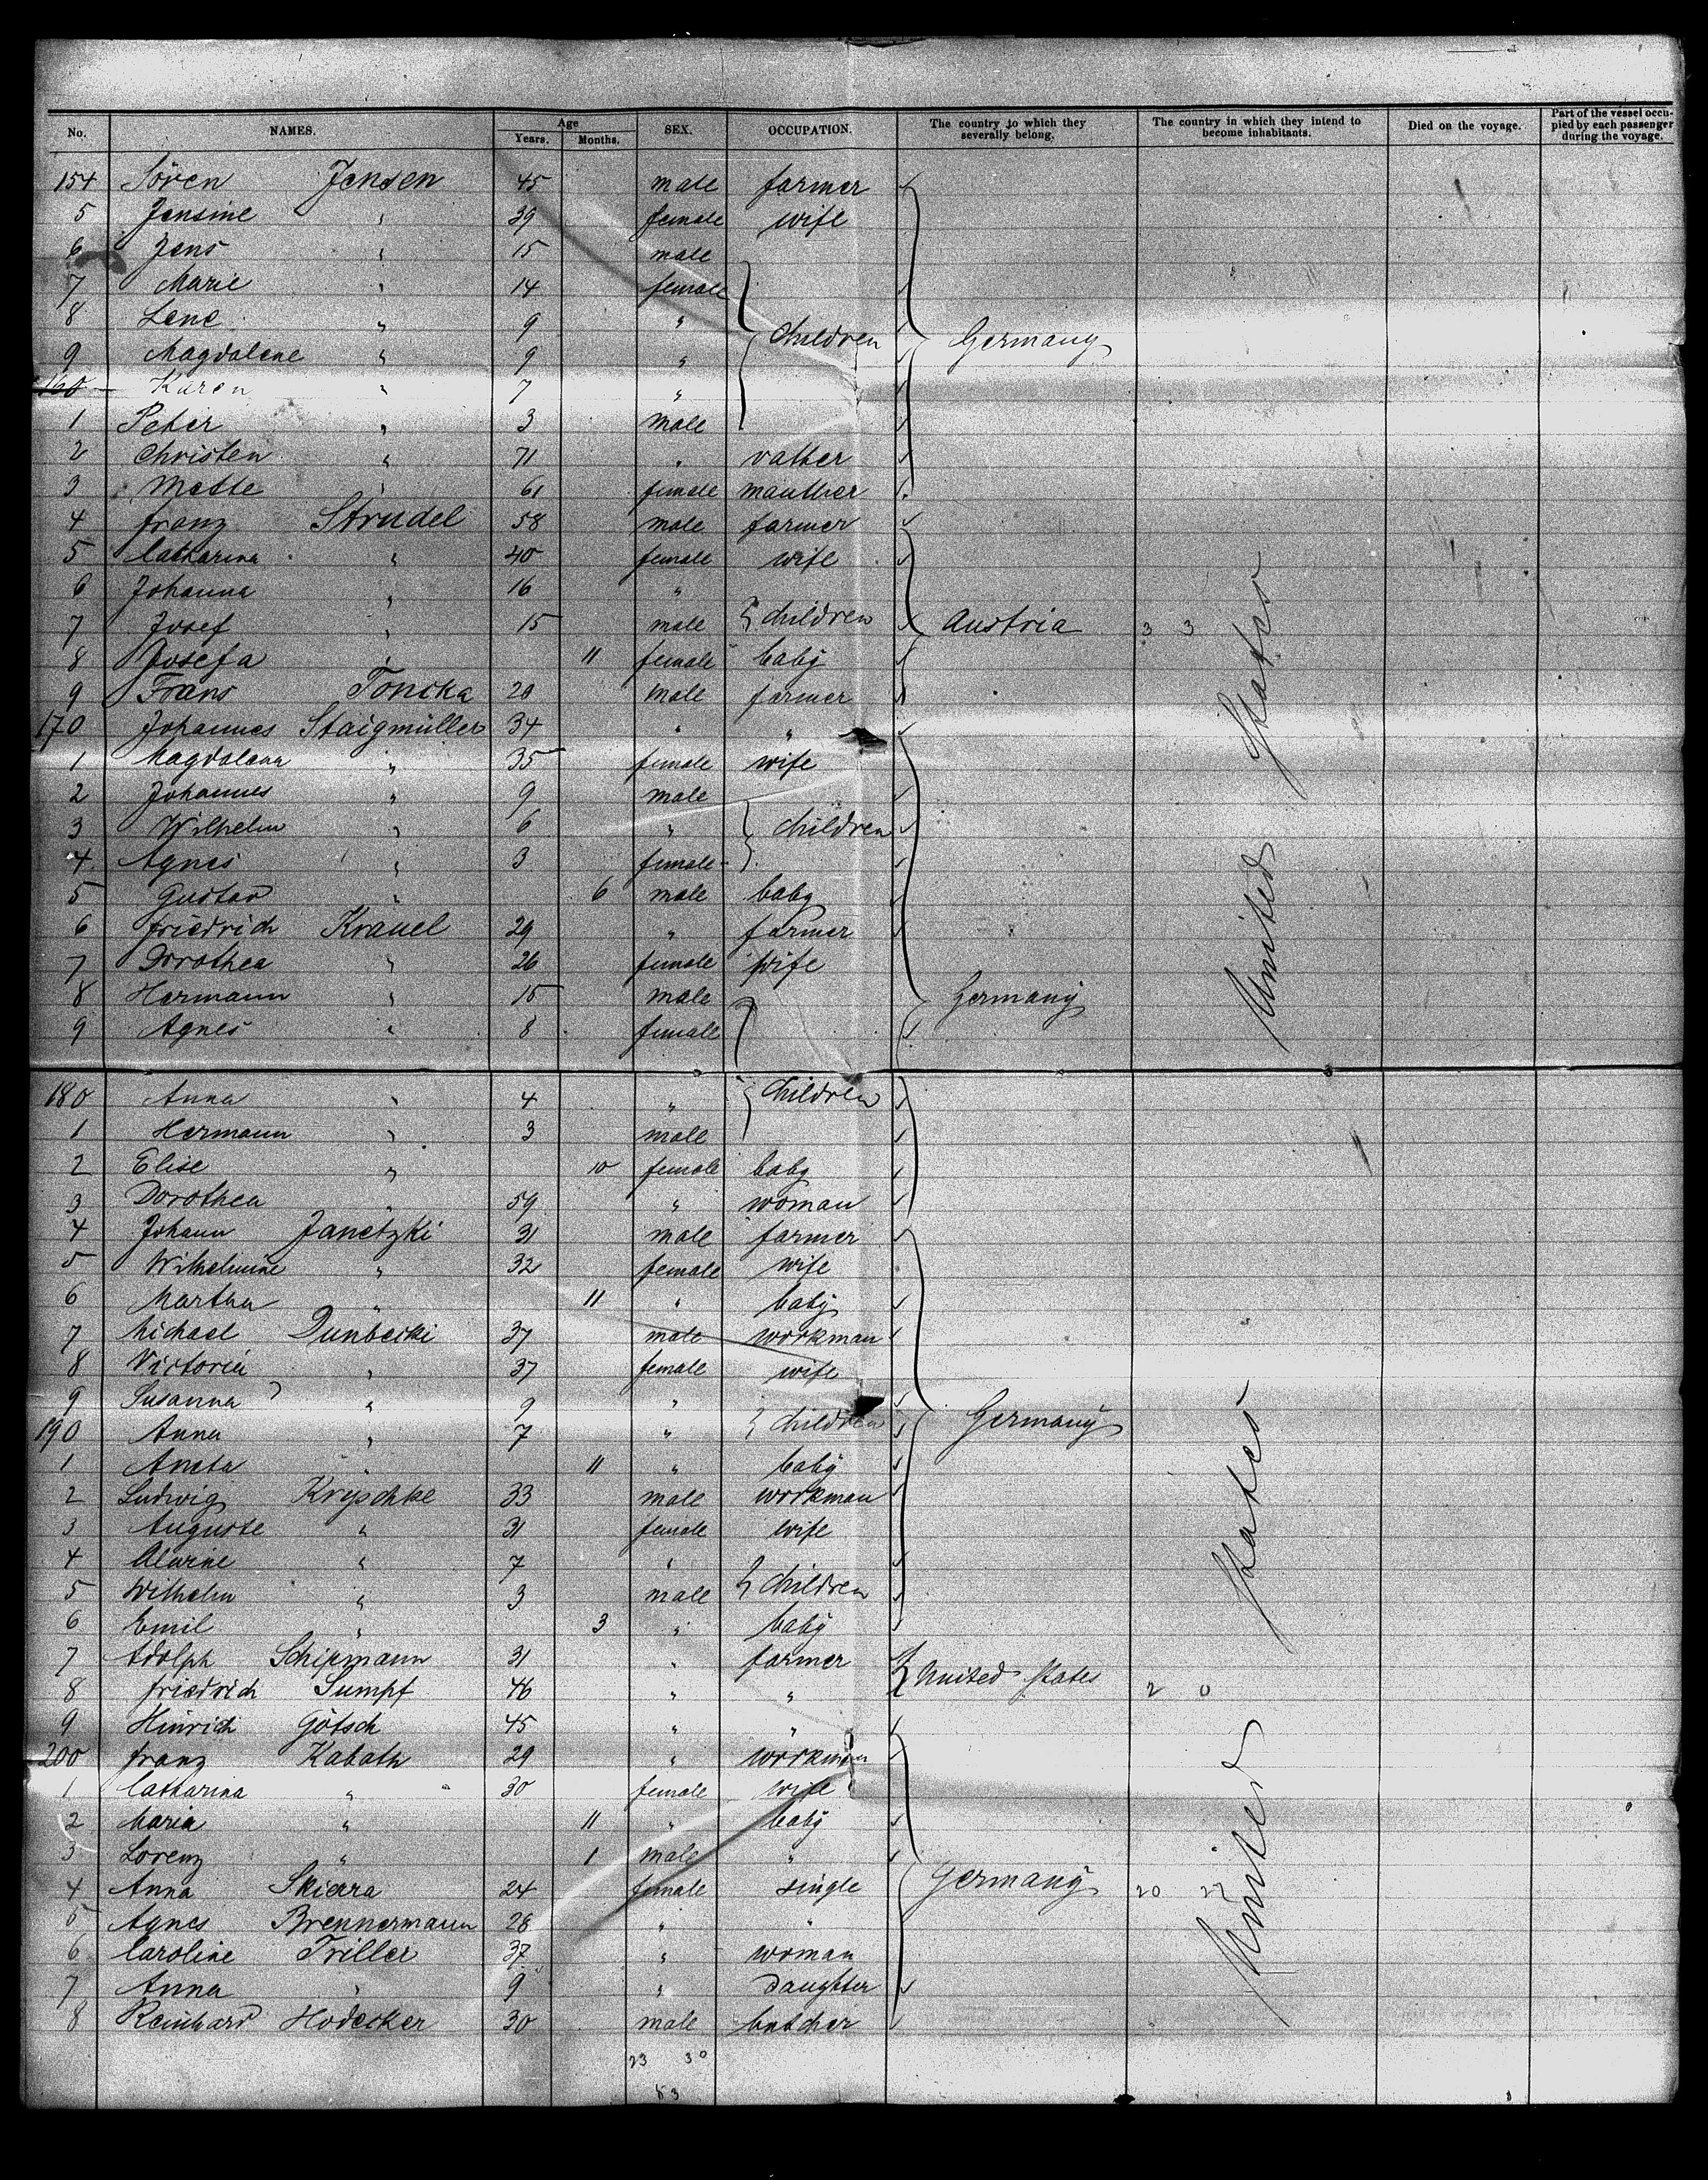 No. NAMES. Age Years. Months. SEX. OCCUPATION. The country to which they severally belong. The country in which they intend to become inhabitants. Died on the voyage. Part of the vessel occupied by each passenger during the voyage.
154 Sören Jensen 45 male farmer
5 Jensine " 39 female wife
6 Jens " 15 male
7 Marie " 14 female
8 Lene " 9 " Children Germany
9 Magdalene " 9 "
160 Karen " 7 "
1 Peter " 3 male
2 Christen " 71 " vather
3 Mette " 61 female mauther
4 Franz Strudel 58 male farmer
5 Catharina " 40 female wife
6 Johanna " 16 "
7 Josef " 15 male children Austria 3 3
8 Josefa " 11 female baby
9 Frans Tonska 20 male farmer
170 Johannes Staigmüller 34 " "
1 Magdalena " 35 female wife
2 Johannes " 9 male
3 Wilhelm " 6 " children
4 Agnes " 3 female
5 Gustav " 6 male baby
6 Friedrich Krauel 29 " farmer
7 Dorothea " 26 female wife
8 Hermann " 15 male Germany
9 Agnes " 8 female
United States
180 Anna " 4 " Children
1 Hermann " 3 male
2 Elise " 10 female baby
3 Dorothea " 59 " woman
4 Johann Janetzki 31 male farmer
5 Wilhelmine " 32 female wife
6 Martha " 11 " baby
7 Michael Dunbecki 37 male workman
8 Victoria " 37 female wife
9 Susanna " 9 "
190 Anna " 7 " children Germany
1 Aneta " 11 " baby
2 Ludwig Kryschke 33 male workman
3 Auguste " 31 female wife
4 Alwine " 7 "
5 Wilhelm " 3 male children
6 Emil " 3 " baby
7 Adolph Schipmann 31 " farmer United States
8 Friedrich Sumpf 46 " " 2 0
9 Hinrich Götsch 45 " "
200 Franz Kabath 29 " workman
1 Catharina " 30 female wife
2 Maria " 11 " baby
3 Lorenz " 1 male "
4 Anna Skierra 24 female single Germany 20 27
5 Agnes Brennermann 28 " "
6 Caroline Triller 37 " woman
7 Anna " 9 " Daughter
8 Reinhard Hodecker 30 male butcher
United States
23 30
53